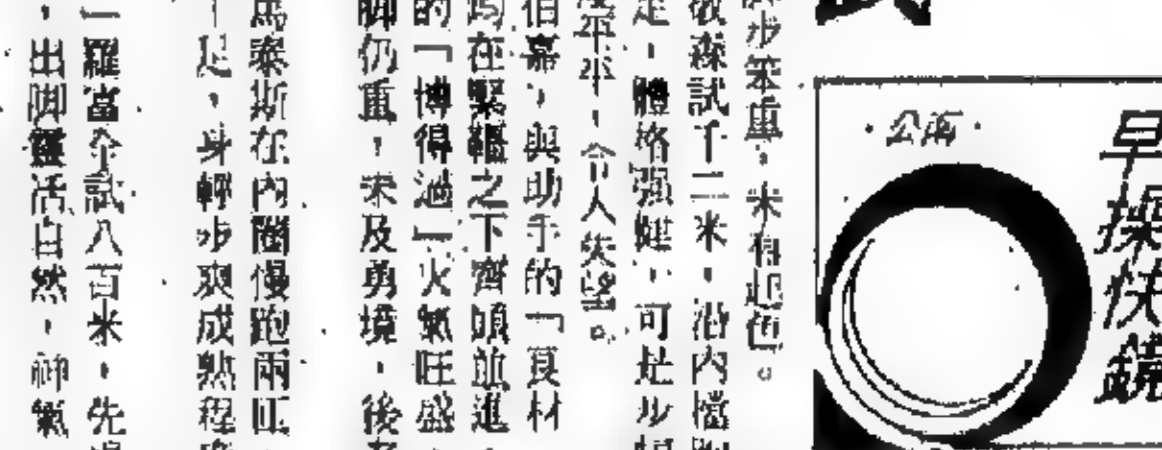 早操快鏡
公海
脚步笨重，未有起色。
敬森試千二米，沿內檔
足，體格强健，可是步
平平，令人失望。
伯嘉，與助手的「良材
均在緊韁之下齊頭並進，
的「博得過」火氣旺盛，
脚仍重，未及勇境，後
馬泰斯在內圈慢跑兩匝，
足，身輕步爽成熟程
」羅富全試八百米，先
，出脚靈活自然，神氣